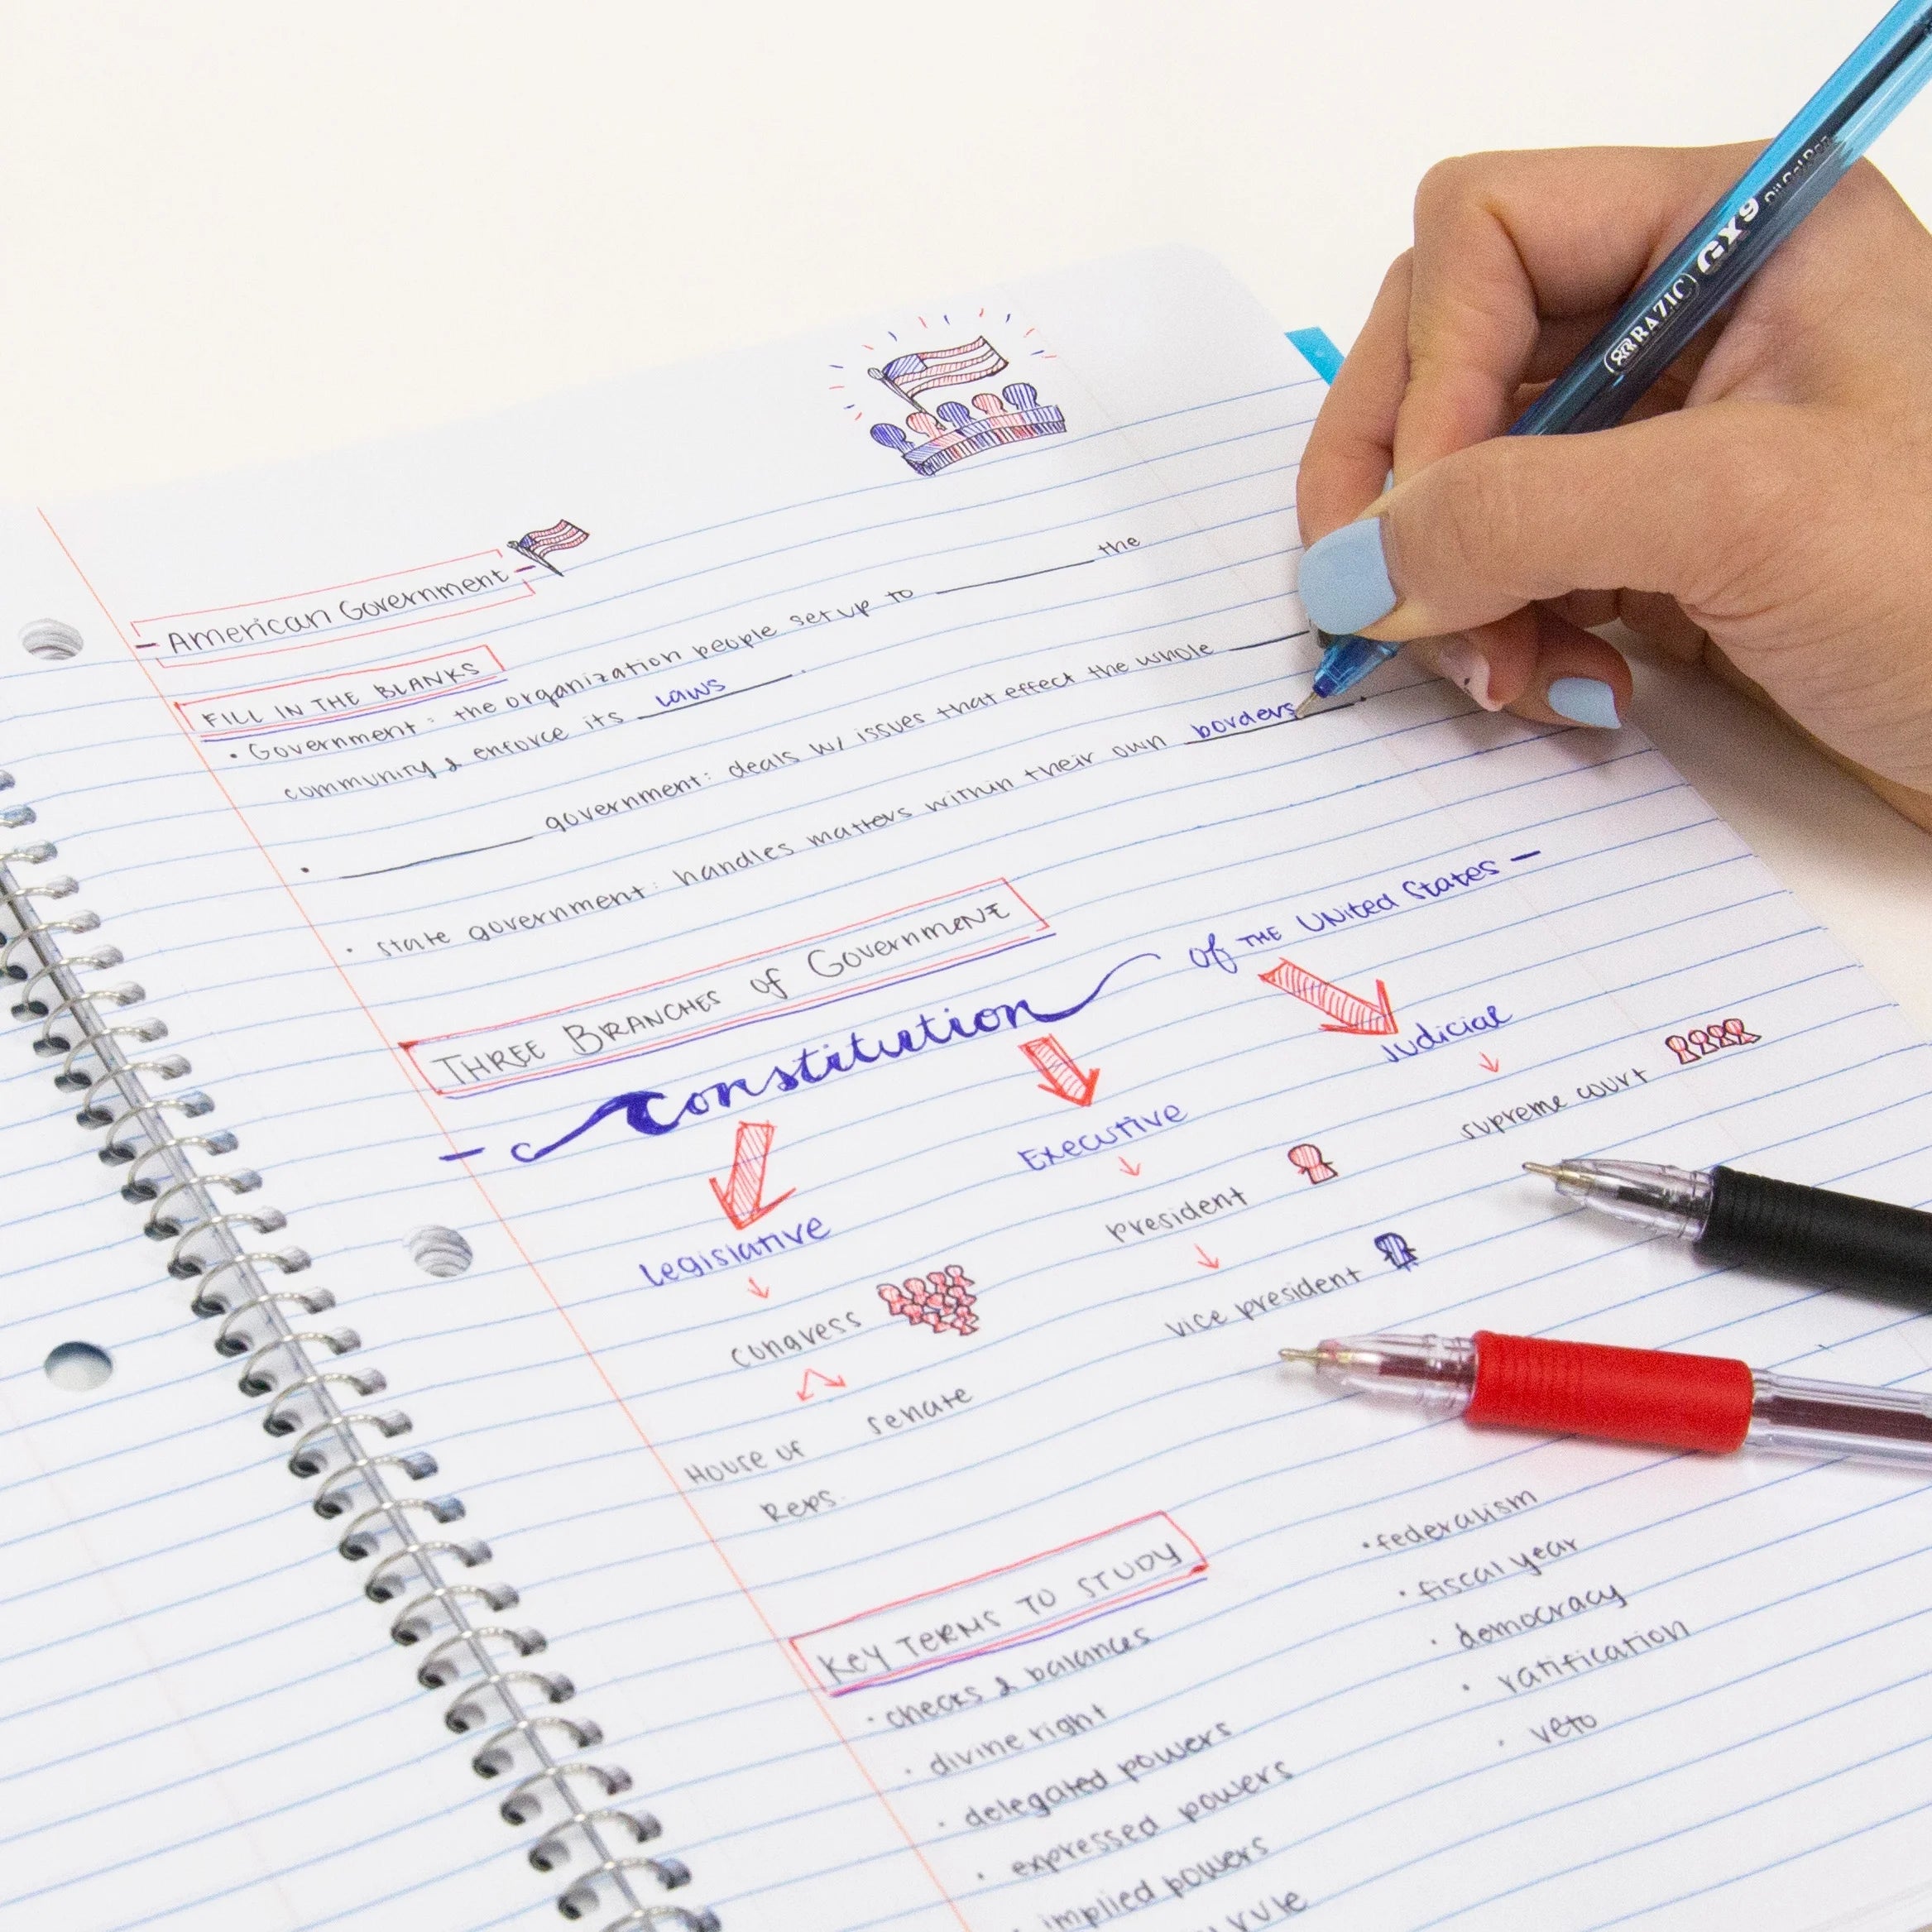 American Government
FILL IN THE BLANKS
• Government: the organization people set up to ________ the
community & enforce its laws.
• ________ government: deals w/ issues that effect the whole ____
• state government: handles matters within their own borders.
THREE BRANCHES of GOVERNMENT
- Constitution of THE UNITED STATES -
Legislative
congress
House of
Reps.
senate
Executive
president
vice president
Judicial
supreme court
KEY TERMS TO STUDY
• checks & balances
• divine right
• delegated powers
• expressed powers
• implied powers
rule
• federalism
• fiscal year
• democracy
• ratification
• veto
BAZIC GX9 Oil Gel Pen